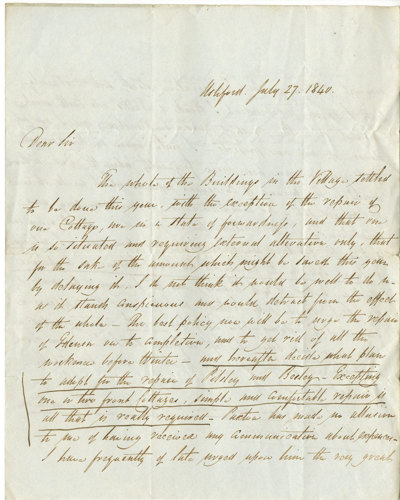 Ashford. July 27. 1840.
Dear Sir
The whole of the Buildings in the Village settled
to be done this year, with the exception of the repair of
one Cottage, are in a state of forwardness, and that one
is so situated and requiring external alteration only, that
for the sake of the amount which might be saved this year
by delaying it. I do not think it would be well to do so
as it stands conspicuous and would detract from the effect
of the whole - The best policy now will be to urge the repairs
of Edensor on to completion, and to get rid of all the
workmen before Winter - and hereafter decide what plan
to adopt for the repair of Pilsley and Beeley - Excepting
one or two front Cottages, simple and comfortable repair is
all that is really required - Paxton has made no allusion
to me of having received any communication about expenses -
I have frequently of late urged upon him the very great